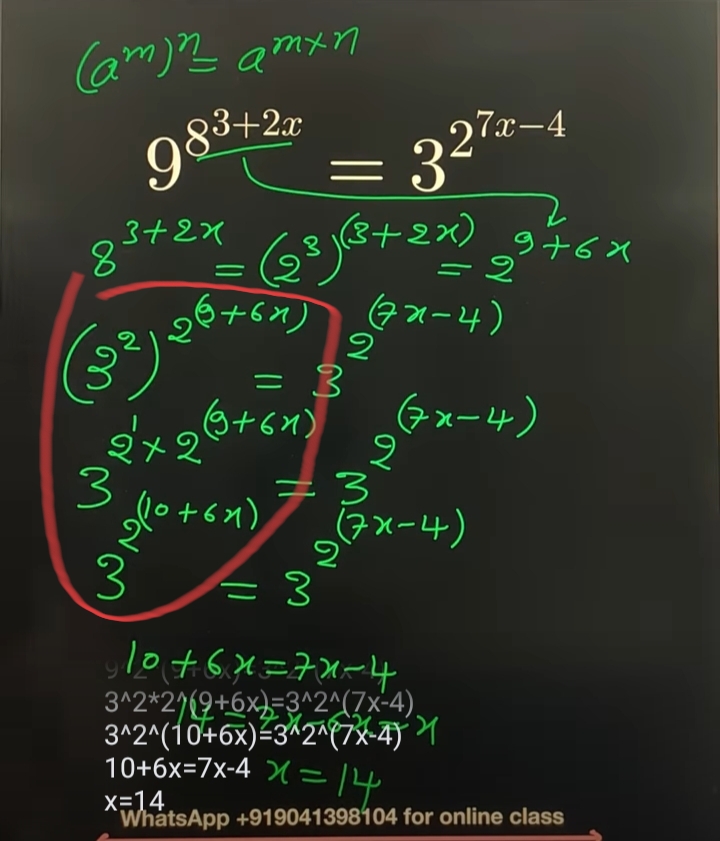 (a^m)^n = a^{m×n}
9^{8^{3+2x}} = 3^{2^{7x-4}}
8^{3+2x} = (2^3)^{(3+2x)} = 2^{9+6x}
(3^2)^{2^{(9+6x)}} = 3^{2^{(7x-4)}}
3^{2^1×2^{(9+6x)}} = 3^{2^{(7x-4)}}
3^{2^{(10+6x)}} = 3^{2^{(7x-4)}}
10+6x=7x-4
3^2*2^(9+6x)=3^2^(7x-4)
14=7x-6x=x
3^2^(10+6x)=3^2^(7x-4)
10+6x=7x-4
x=14
x=14
WhatsApp +919041398104 for online class